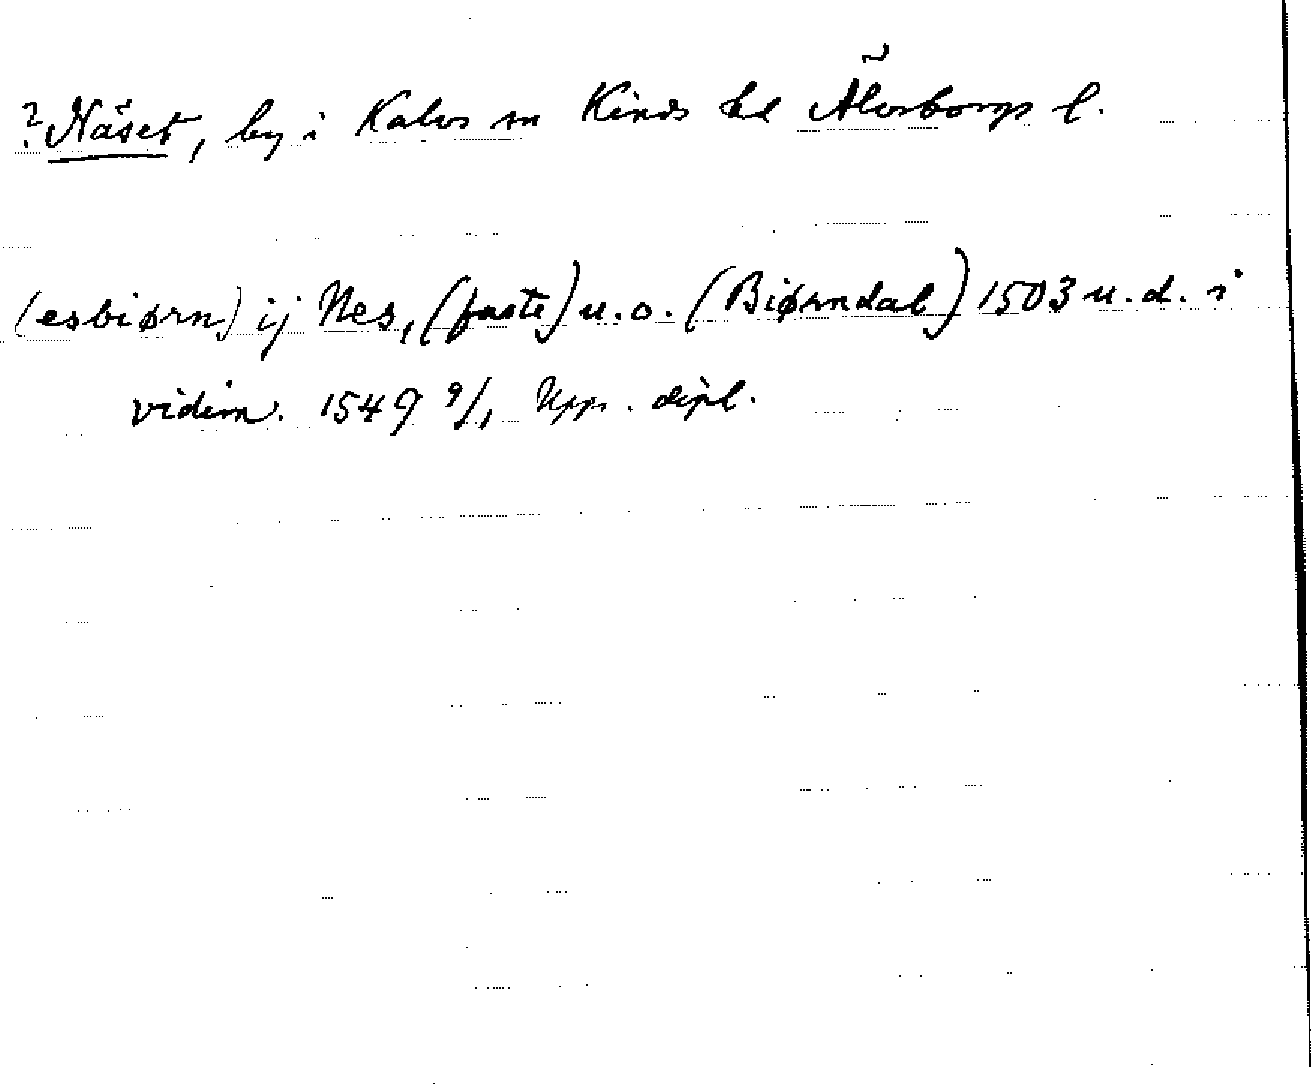 ? Näset, by i Kalvs sn Kinds hd Älvsborgs l.
(esbiørn) ij Nes, (faste) u.o. (Biørndal) 1503 u.d. i
vidim. 1549 9/1 Upps. dipl.